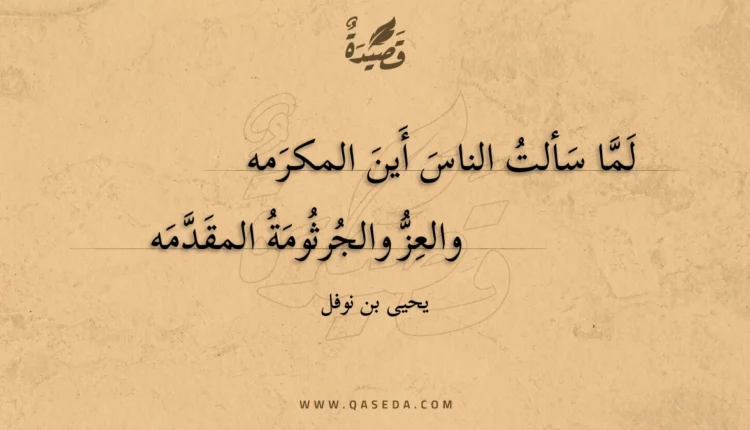 قَصِيْدَةٌ
لَمَّا سَألتُ الناسَ أَينَ المكرَمه
والعِزُّ والجُرثُومَةُ المقَدَّمَه
يحيى بن نوفل
WWW.QASEDA.COM